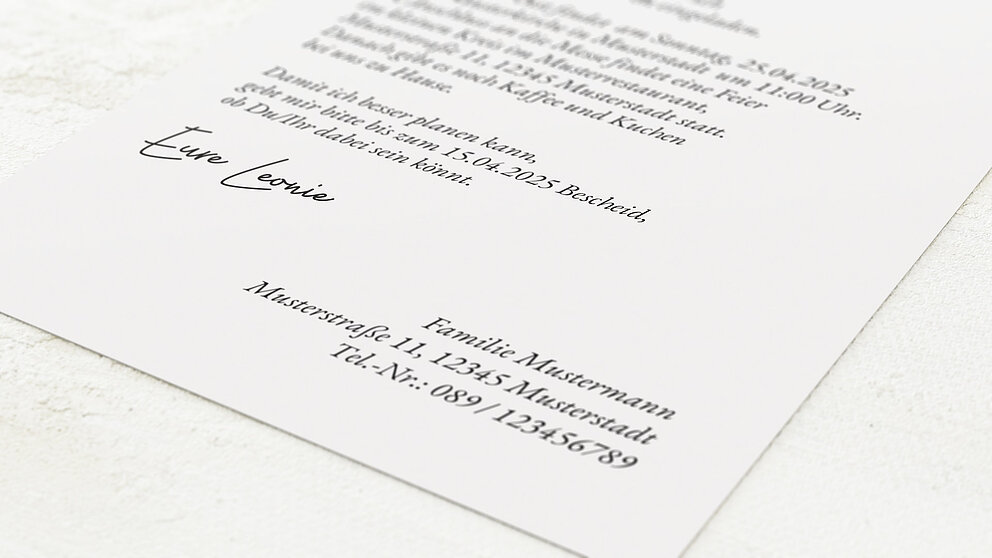 eingeladen.
findet am Sonntag, 25.04.2025
in Musterstadt um 11:00 Uhr.
an die Messe findet eine Feier
im kleinen Kreis im Musterrestaurant,
Musterstraße 11, 12345 Musterstadt statt.
Danach gibt es noch Kaffee und Kuchen
bei uns zu Hause.
Damit ich besser planen kann,
gebt mir bitte bis zum 15.04.2025 Bescheid,
ob Du/Ihr dabei sein könnt.
Eure Leonie
Familie Mustermann
Musterstraße 11, 12345 Musterstadt
Tel.-Nr.: 089 / 123456789